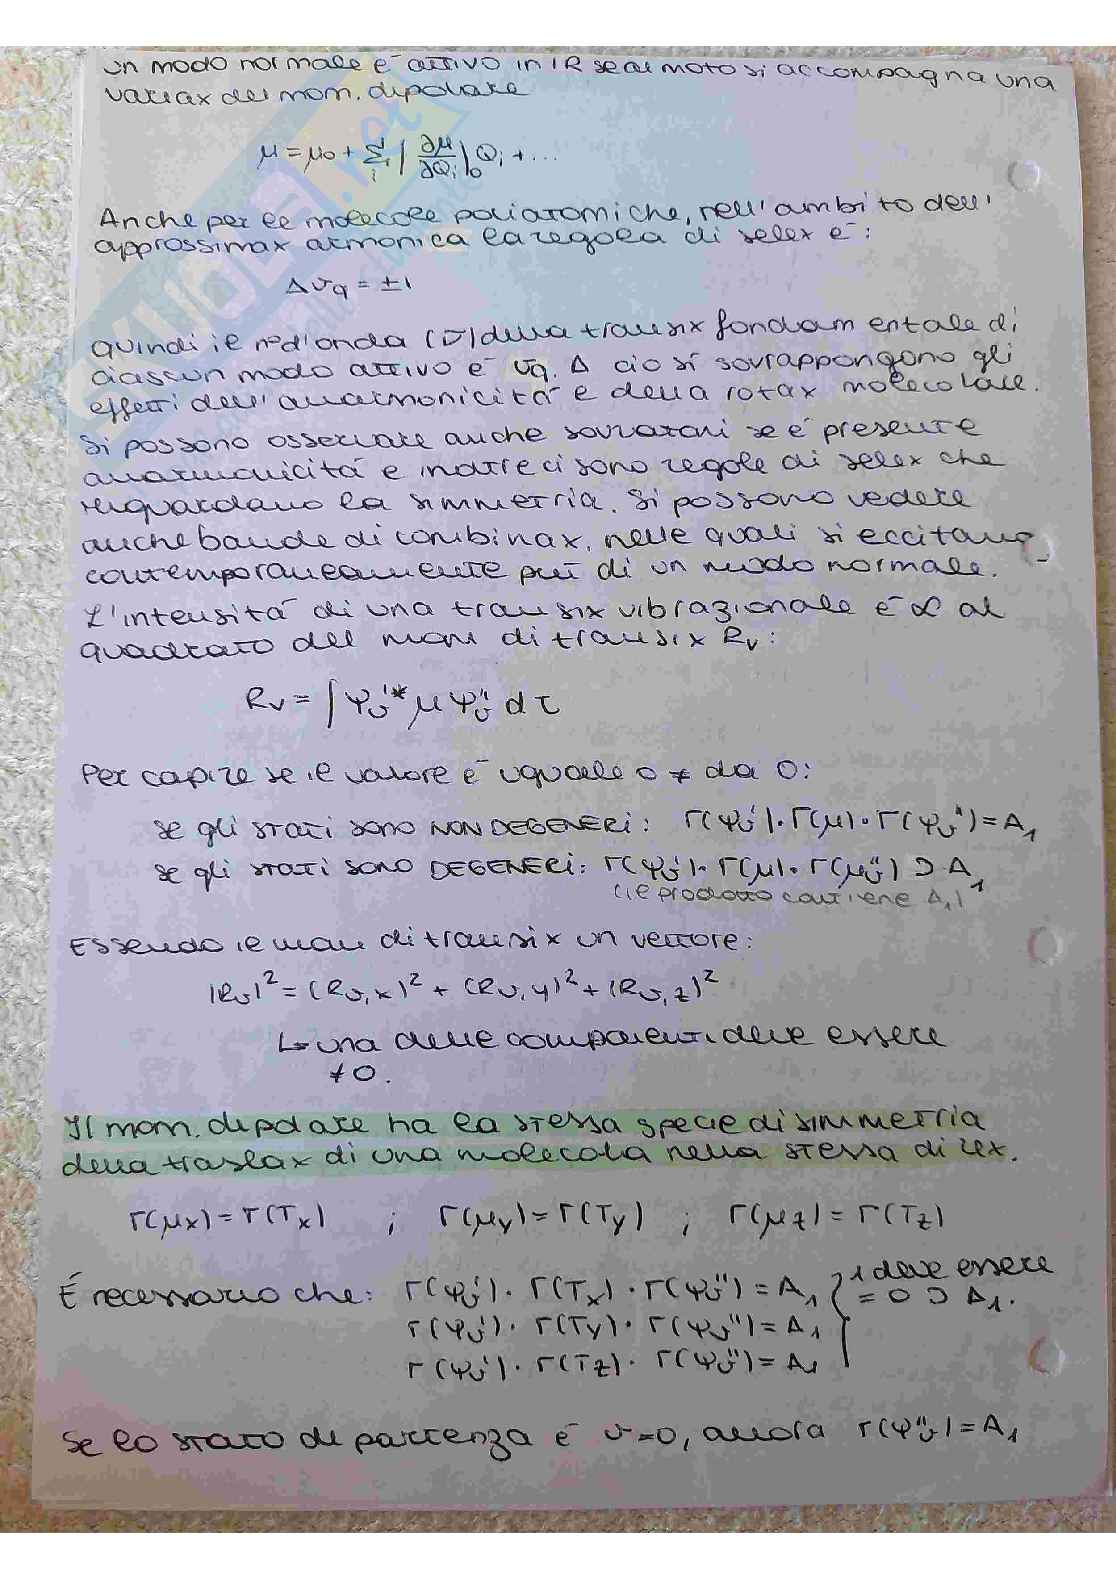 un modo normale é attivo in IR se al moto si accompagna una
variax del mom. dipolare
μ = μ0 + Σi (∂μ/∂Qi)0 Qi + ...
Anche per le molecole poliatomiche, nell'ambito dell'
approssimax armonica la regola di selex é:
Δvq = ±1
quindi il n° d'onda (ν̃) della transix fondamentale di
ciascun modo attivo é ν̃q. A ció si sovrappongono gli
effetti dell'anarmonicitá e della rotax molecolare.
Si possono osservare anche sovratoni se é presente
anarmonicitá e inoltre ci sono regole di selex che
riguardano la simmetria. Si possono vedere
anche bande di combinax, nelle quali si eccitano
contemporaneamente piú di un modo normale.
L'intensitá di una transix vibrazionale é ∝ al
quadrato del mom di transix Rv:
Rv = ∫ψv'* μ ψv'' dτ
Per capire se il valore é uguale o ≠ da 0:
se gli stati sono NON DEGENERI: Γ(ψv')·Γ(μ)·Γ(ψv'') = A1
se gli stati sono DEGENERI: Γ(ψv')·Γ(μ)·Γ(μv'') ⊃ A1
(il prodotto contiene A1)
Essendo il mom di transix un vettore:
|Rv|² = (Rv,x)² + (Rv,y)² + (Rv,z)²
↳ una delle componenti deve essere
≠ 0.
Il mom. dipolare ha la stessa specie di simmetria
della traslax di una molecola nella stessa direx.
Γ(μx) = Γ(Tx) ; Γ(μy) = Γ(Ty) ; Γ(μz) = Γ(Tz)
É necessario che: Γ(ψv')·Γ(Tx)·Γ(ψv'') = A1 } 1 deve essere
= o ⊃ A1.
Γ(ψv')·Γ(Ty)·Γ(ψv'') = A1
Γ(ψv')·Γ(Tz)·Γ(ψv'') = A1
Se lo stato di partenza é v=0, allora Γ(ψv'') = A1